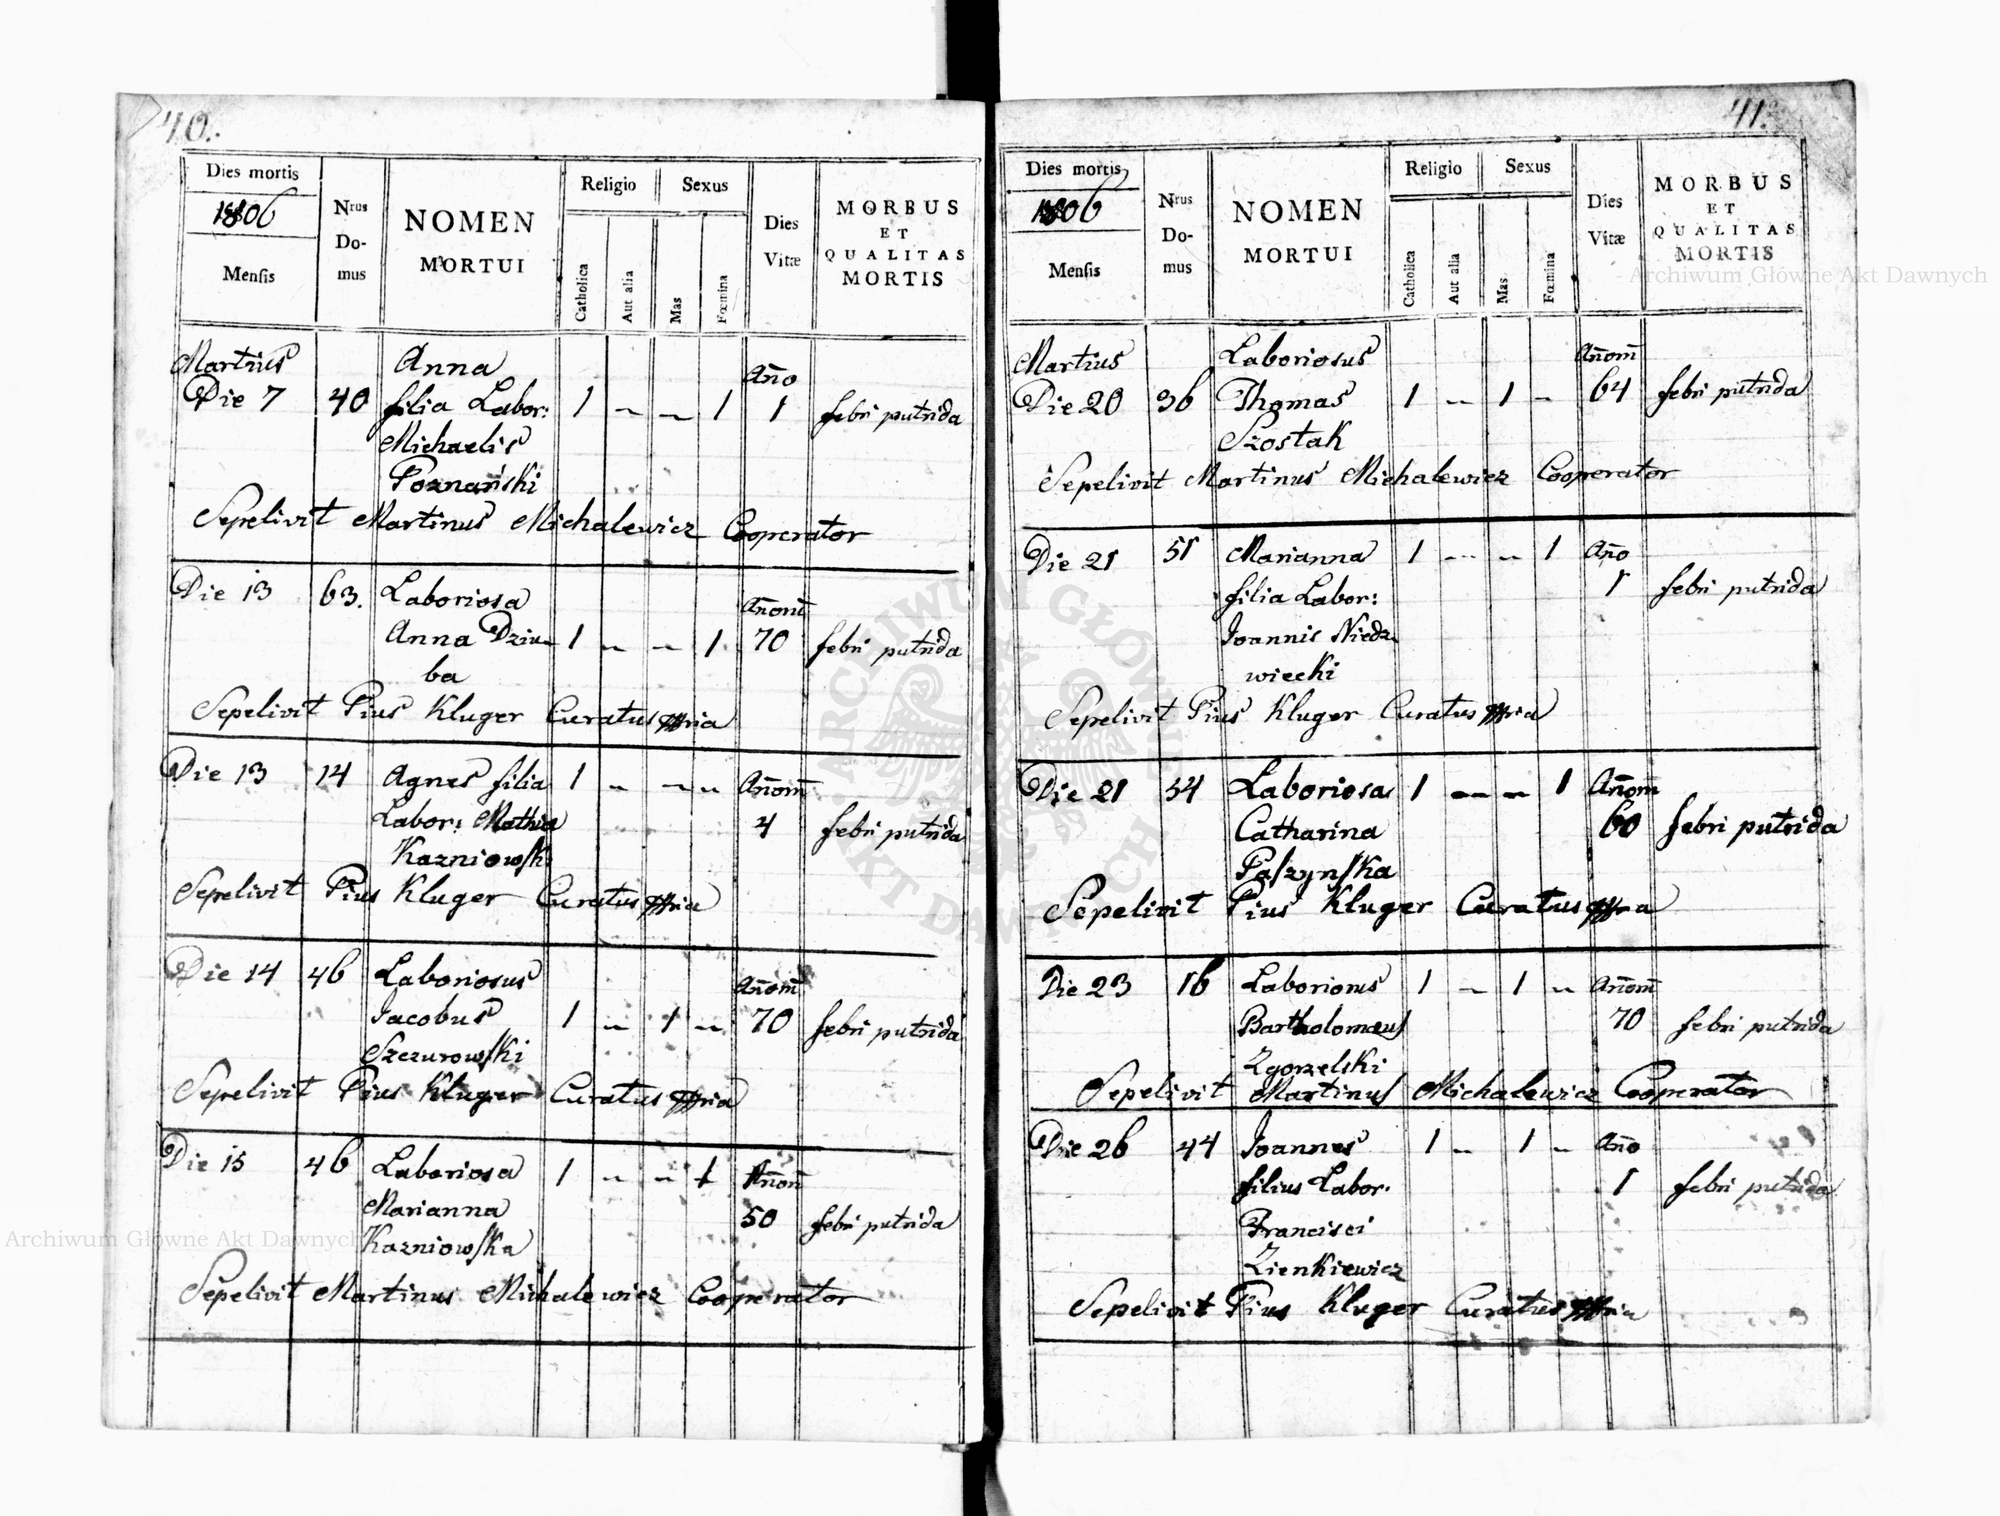 40.
Dies mortis
1806
Mensis
Nrus
Do-
mus
NOMEN
MORTUI
Religio
Catholica
Aut alia
Sexus
Mas
Fœmina
Dies
Vitæ
MORBUS
ET
QUALITAS
MORTIS
Martius
Die 7 40 Anna
filia Labor:
Michaelis
Poznański
1 - - 1 Año
1 febri putrida
Sepelivit Martinus Michalewicz Cooperator
Die 13 63. Laboriosa
Anna Dziu-
ba
1 - - 1 Añom
70 febri putrida
Sepelivit Pius Kluger Curatus
Die 13 14 Agnes filia
Labor: Mathia
Kazniowski
1 - - - Añom
4 febri putrida
Sepelivit Pius Kluger Curatus
Die 14 46 Laboriosus
Jacobus
Szczurowski
1 - 1 - Añom
70 febri putrida
Sepelivit Pius Kluger Curatus
Die 15 46 Laboriosa
Marianna
Kazniowska
1 - - 1 Añom
50 febri putrida
Sepelivit Martinus Michalewicz Cooperator
41.
Dies mortis
1806
Mensis
Nrus
Do-
mus
NOMEN
MORTUI
Religio
Catholica
Aut alia
Sexus
Mas
Fœmina
Dies
Vitæ
MORBUS
ET
QUALITAS
MORTIS
Martius
Die 20 36 Laboriosus
Thomas
Szostak
1 - 1 - Añom
64 febri putrida
Sepelivit Martinus Michalewicz Cooperator
Die 21 51 Marianna
filia Labor:
Joannis Niedz-
wiecki
1 - - 1 Año
1 febri putrida
Sepelivit Pius Kluger Curatus
Die 21 54 Laboriosa
Catharina
Paszynska
1 - - 1 Añom
60 febri putrida
Sepelivit Pius Kluger Curatus
Die 23 16 Laboriosus
Bartholomæus
Zgorzelski
1 - 1 - Añom
70 febri putrida
Sepelivit Martinus Michalewicz Cooperator
Die 26 44 Joannes
filius Labor.
Francisci
Zienkiewicz
1 - 1 - Año
1 febri putrida
Sepelivit Pius Kluger Curatus
Archiwum Główne Akt Dawnych
Archiwum Główne Akt Dawnych
ARCHIWUM GŁÓWNE AKT DAWNYCH